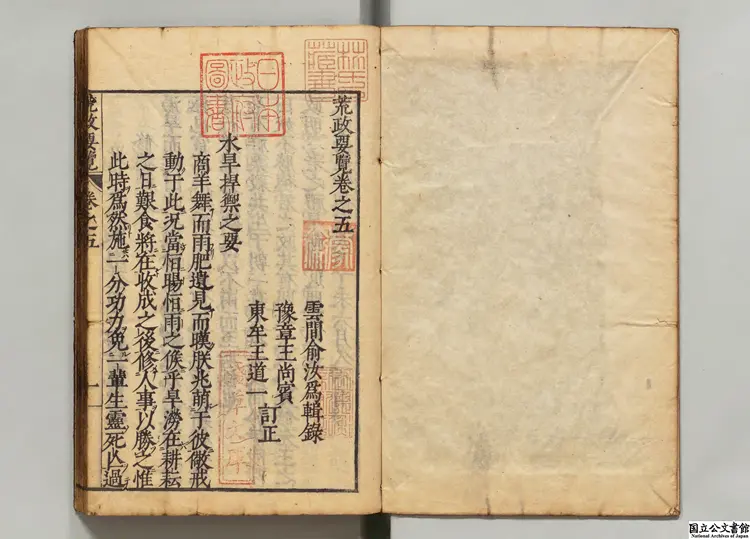 荒政要覽卷之五
雲間俞汝爲輯錄
豫章王尚賓
東牟王道一
訂正
水旱捍禦之要
商羊舞而雨肥遺見而嘆朕兆萌于彼儆戒
動于此況當恒暘恒雨之候乎旱澇在耕耘
之日艱食將在收成之後修人事以勝之惟
此時爲然施一分功力免一輩生靈死亾過
荒政要覽
卷之五
一
日本
政府
圖書
国立公文書館
National Archives of Japan